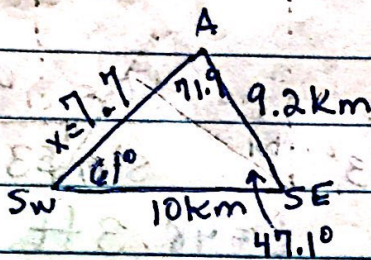 A
x=7.7
71.9
9.2km
61°
SW
10km
SE
47.1°